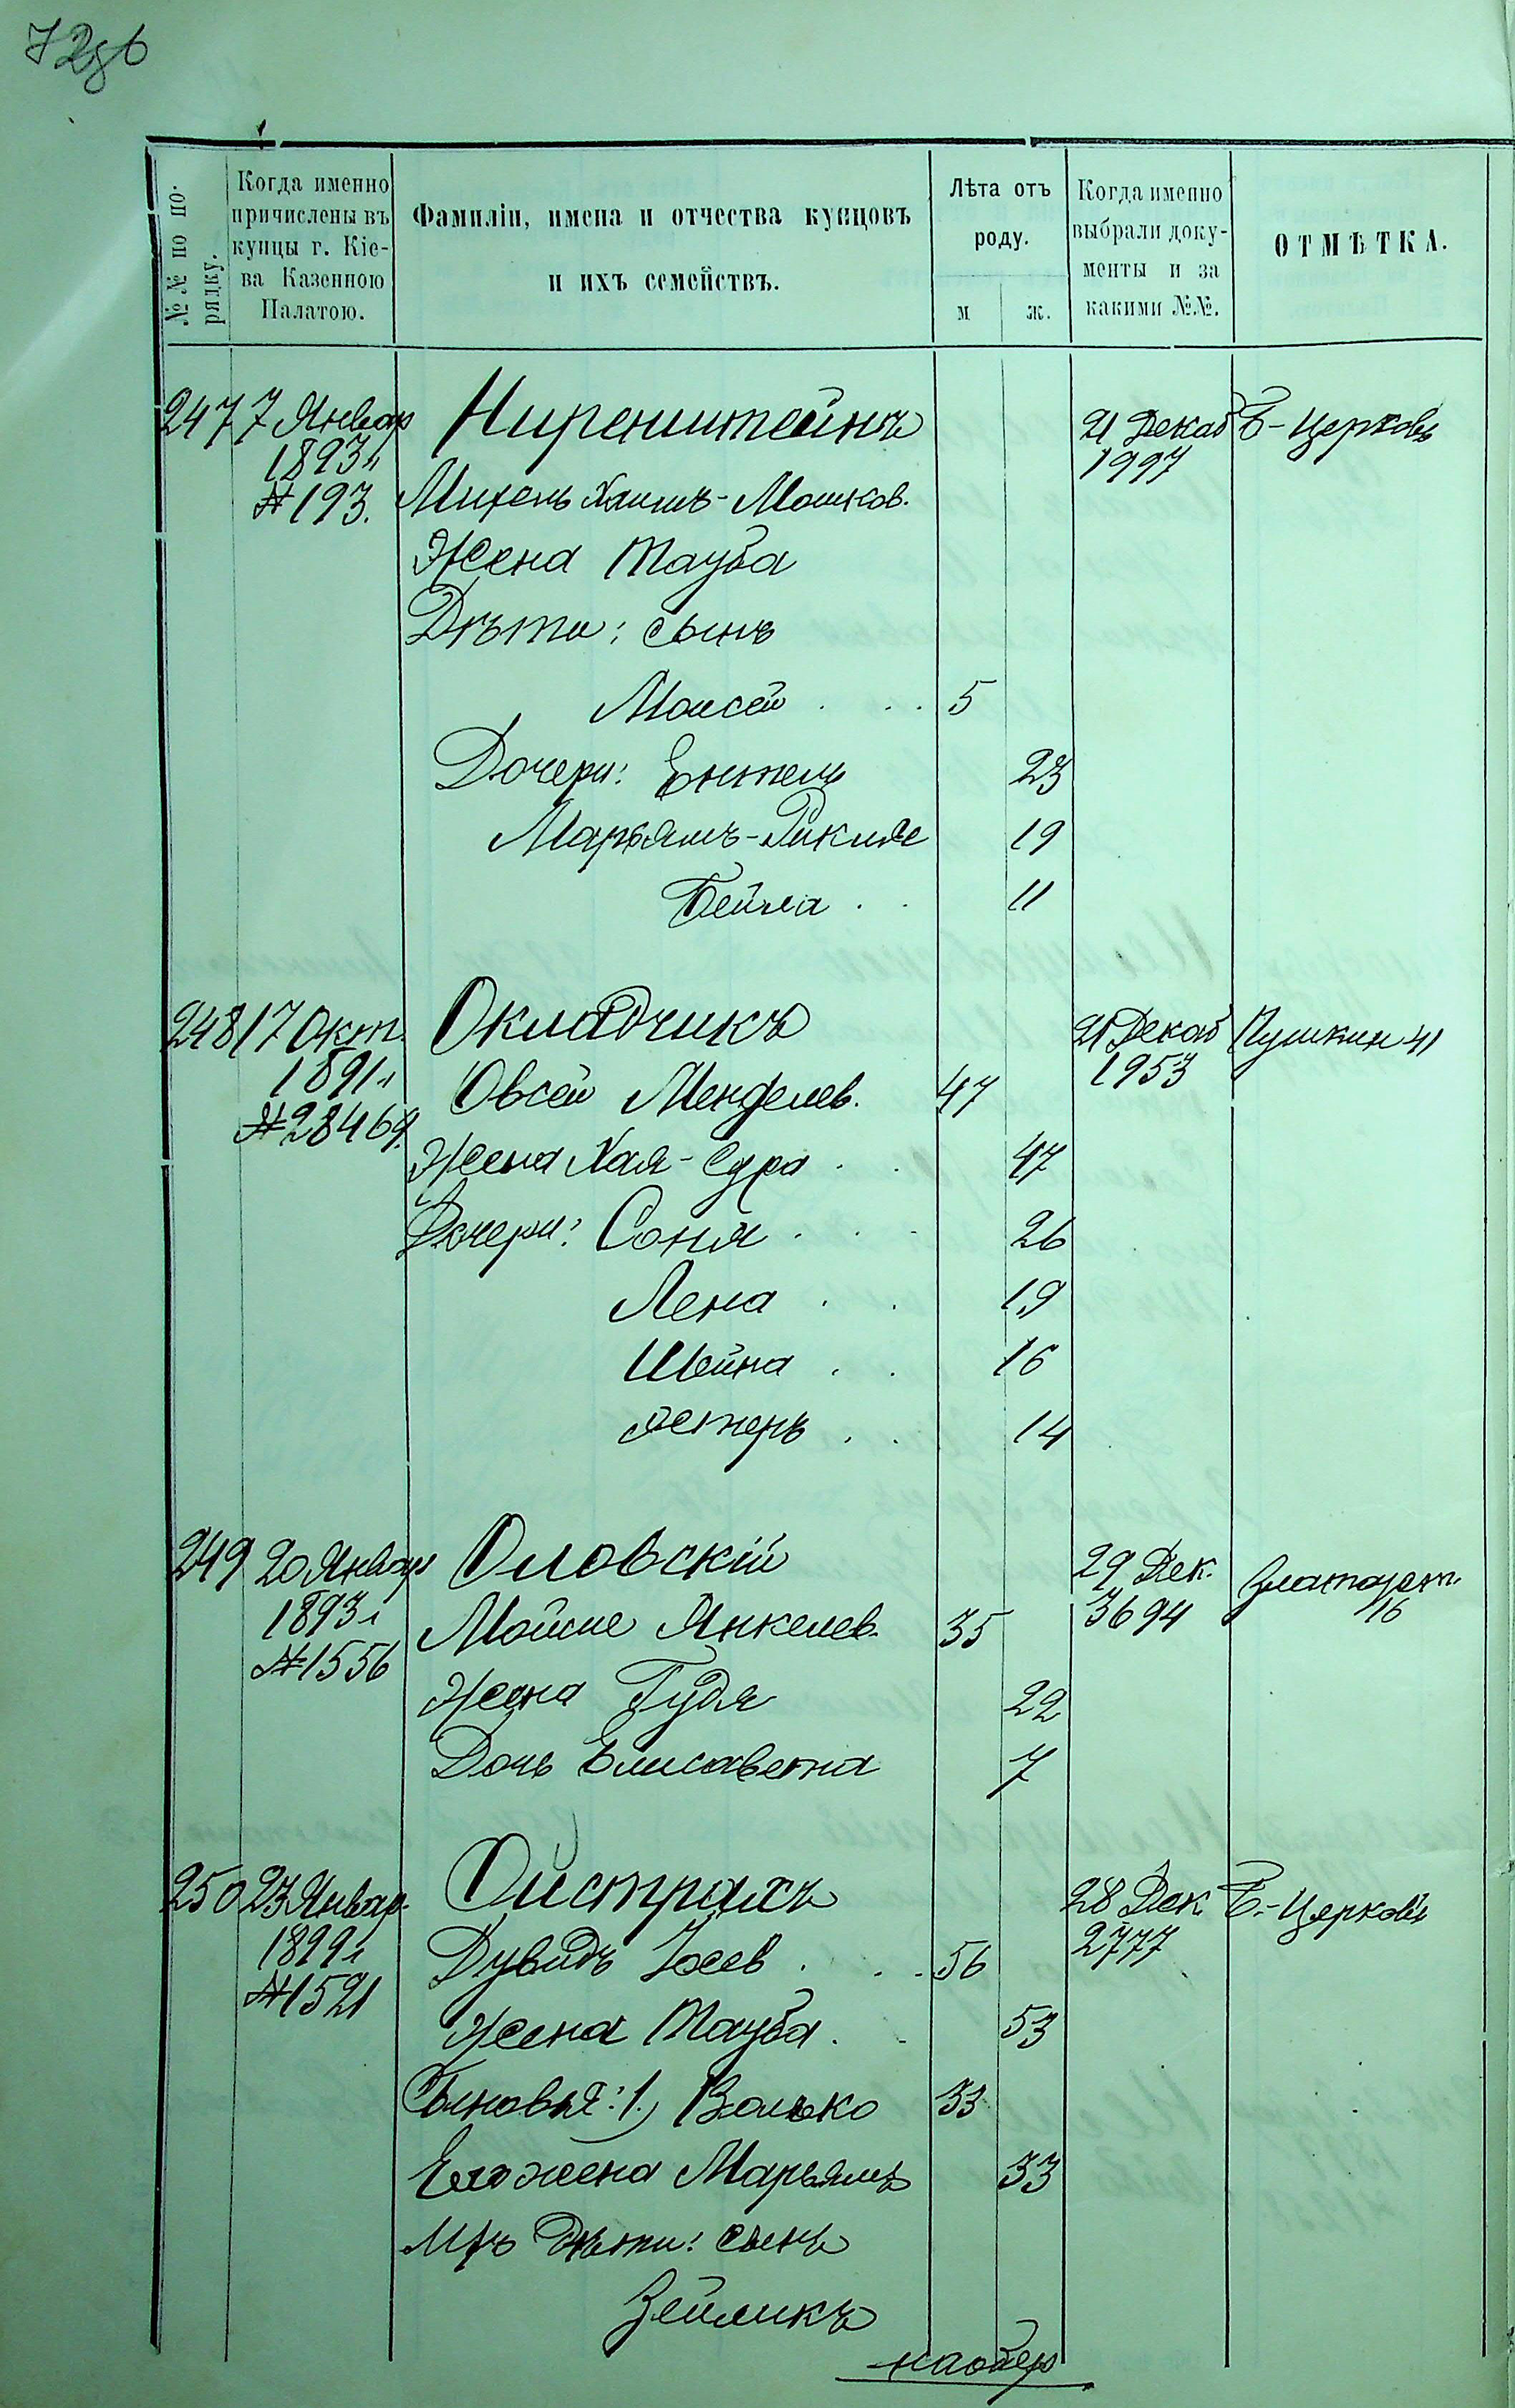 72об
№№ по по-
рядку.
Когда именно
причислены въ
купцы г. Кіе-
ва Казенною
Палатою.
Фамиліи, имена и отчества купцовъ
и ихъ семействъ.
Лѣта отъ
роду.
м ж.
Когда именно
выбрали доку-
менты и за
какими №№.
ОТМѢТКА.
247 7 Январ Ниренштейнъ 21 Декаб Б-Церковь
1893 г 1997
№ 193. Михель Хаимъ-Мошков.
Жена Тауба
Дѣти: сынъ
Моисей . . . 5
Дочери: Ентель 23
Марьямъ-Рикля 19
Бейла . . 11
248 17 Окт. Окладчикъ 21 Декаб Пушкин 41
1891 г 1953
№ 28469. Овсей Менделев. 47
Жена Хая-Сура . . 47
Дочери: Соня . . . 26
Лена . . 19
Шейна . . 16
Эстеръ . . 14
249 20 Январ Оловскій 29 Дек. Златоуст.
1893 г 3694 16
№ 1556 Мойше Янкелев. 35
Жена Гудя 22
Дочь Елисавета 7
250 23 Январ. Ойстрахъ 28 Дек. Б.-Церковь
1899 г 2777
№ 1521 Дувидъ Іосев . . . 56
Жена Тауба . . 53
Сыновья: 1.) Волько 33
Его жена Марьямъ 33
Ихъ дѣти: сынъ
Зейликъ
наобор